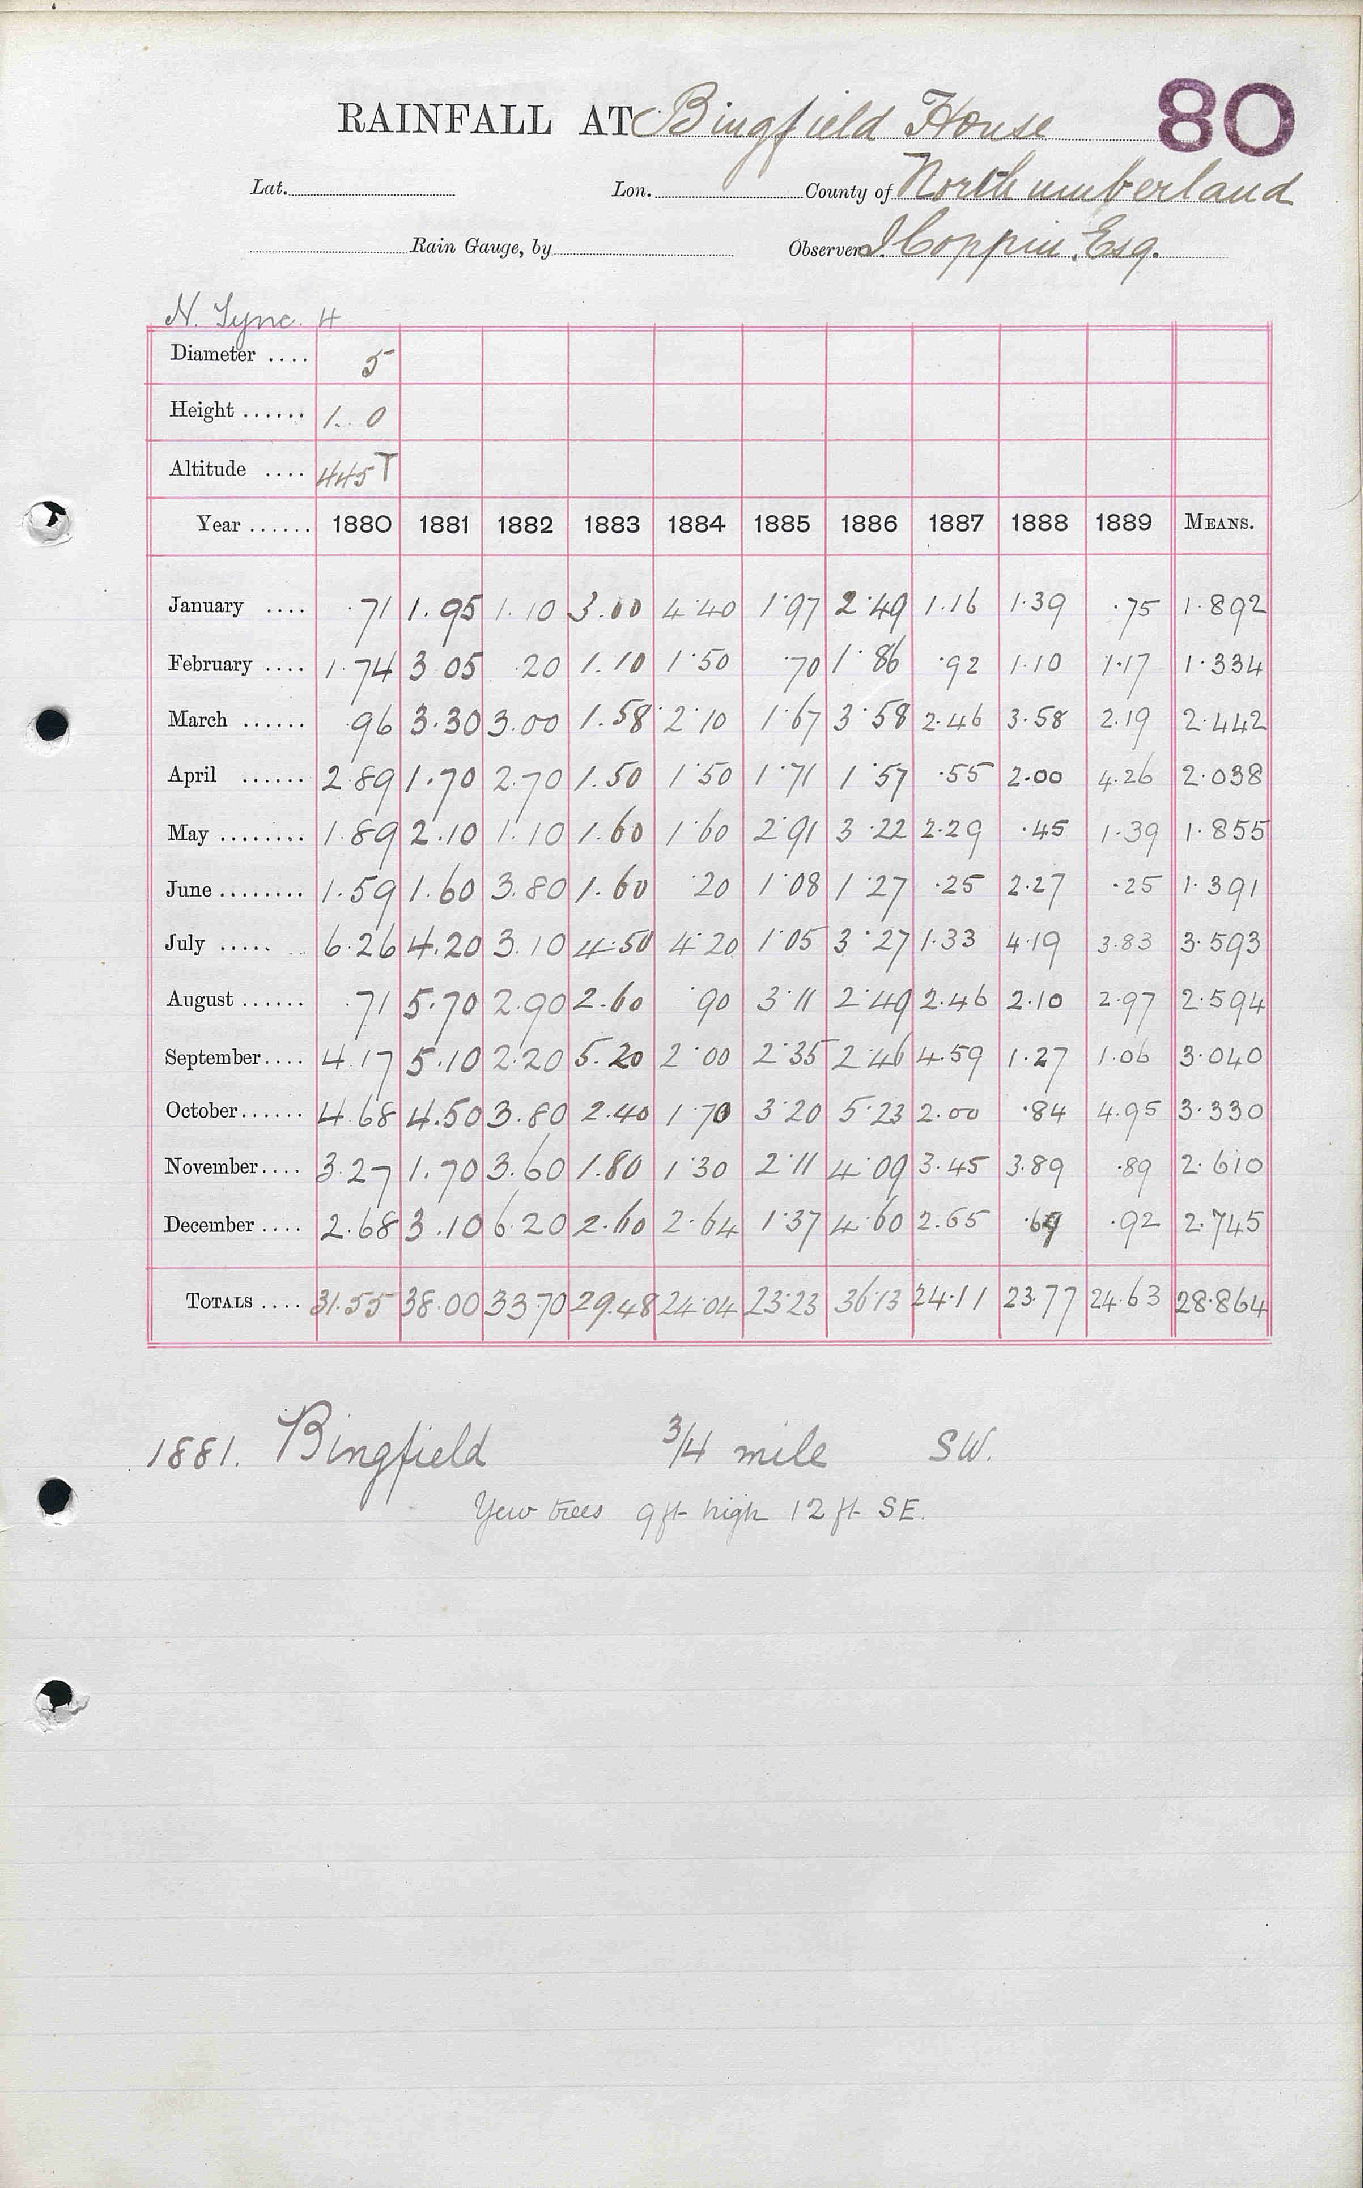 RAINFALL AT Bingfield House 80
Lat. Lon. County of Northumberland
Rain Gauge, by Observer J Coppin Esq.
N. Tyne. 4
Diameter .... 5
Height ...... 1. 0
Altitude .... 445 T
Year ...... 1880 1881 1882 1883 1884 1885 1886 1887 1888 1889 MEANS.
January .... .71 1.95 1.10 3.00 4.40 1.97 2.49 1.16 1.39 .75 1.892
February .... 1.74 3.05 .20 1.10 1.50 .70 1.86 .92 1.10 1.17 1.334
March ...... .96 3.30 3.00 1.58 2.10 1.67 3.58 2.46 3.58 2.19 2.442
April ...... 2.89 1.70 2.70 1.50 1.50 1.71 1.57 .55 2.00 4.26 2.038
May ........ 1.89 2.10 1.10 1.60 1.60 2.91 3.22 2.29 .45 1.39 1.855
June ........ 1.59 1.60 3.80 1.60 .20 1.08 1.27 .25 2.27 .25 1.391
July ..... 6.26 4.20 3.10 4.50 4.20 1.05 3.27 1.33 4.19 3.83 3.593
August ...... .71 5.70 2.90 2.60 .90 3.11 2.49 2.46 2.10 2.97 2.594
September .... 4.17 5.10 2.20 5.20 2.00 2.35 2.46 4.59 1.27 1.06 3.040
October ...... 4.68 4.50 3.80 2.40 1.70 3.20 5.23 2.00 .84 4.95 3.330
November .... 3.27 1.70 3.60 1.80 1.30 2.11 4.09 3.45 3.89 .89 2.610
December .... 2.68 3.10 6.20 2.60 2.64 1.37 4.60 2.65 .69 .92 2.745
TOTALS .... 31.55 38.00 33.70 29.48 24.04 23.23 36.13 24.11 23.77 24.63 28.864
1881. Bingfield 3/4 mile SW.
Yew trees 9 ft high 12 ft SE.